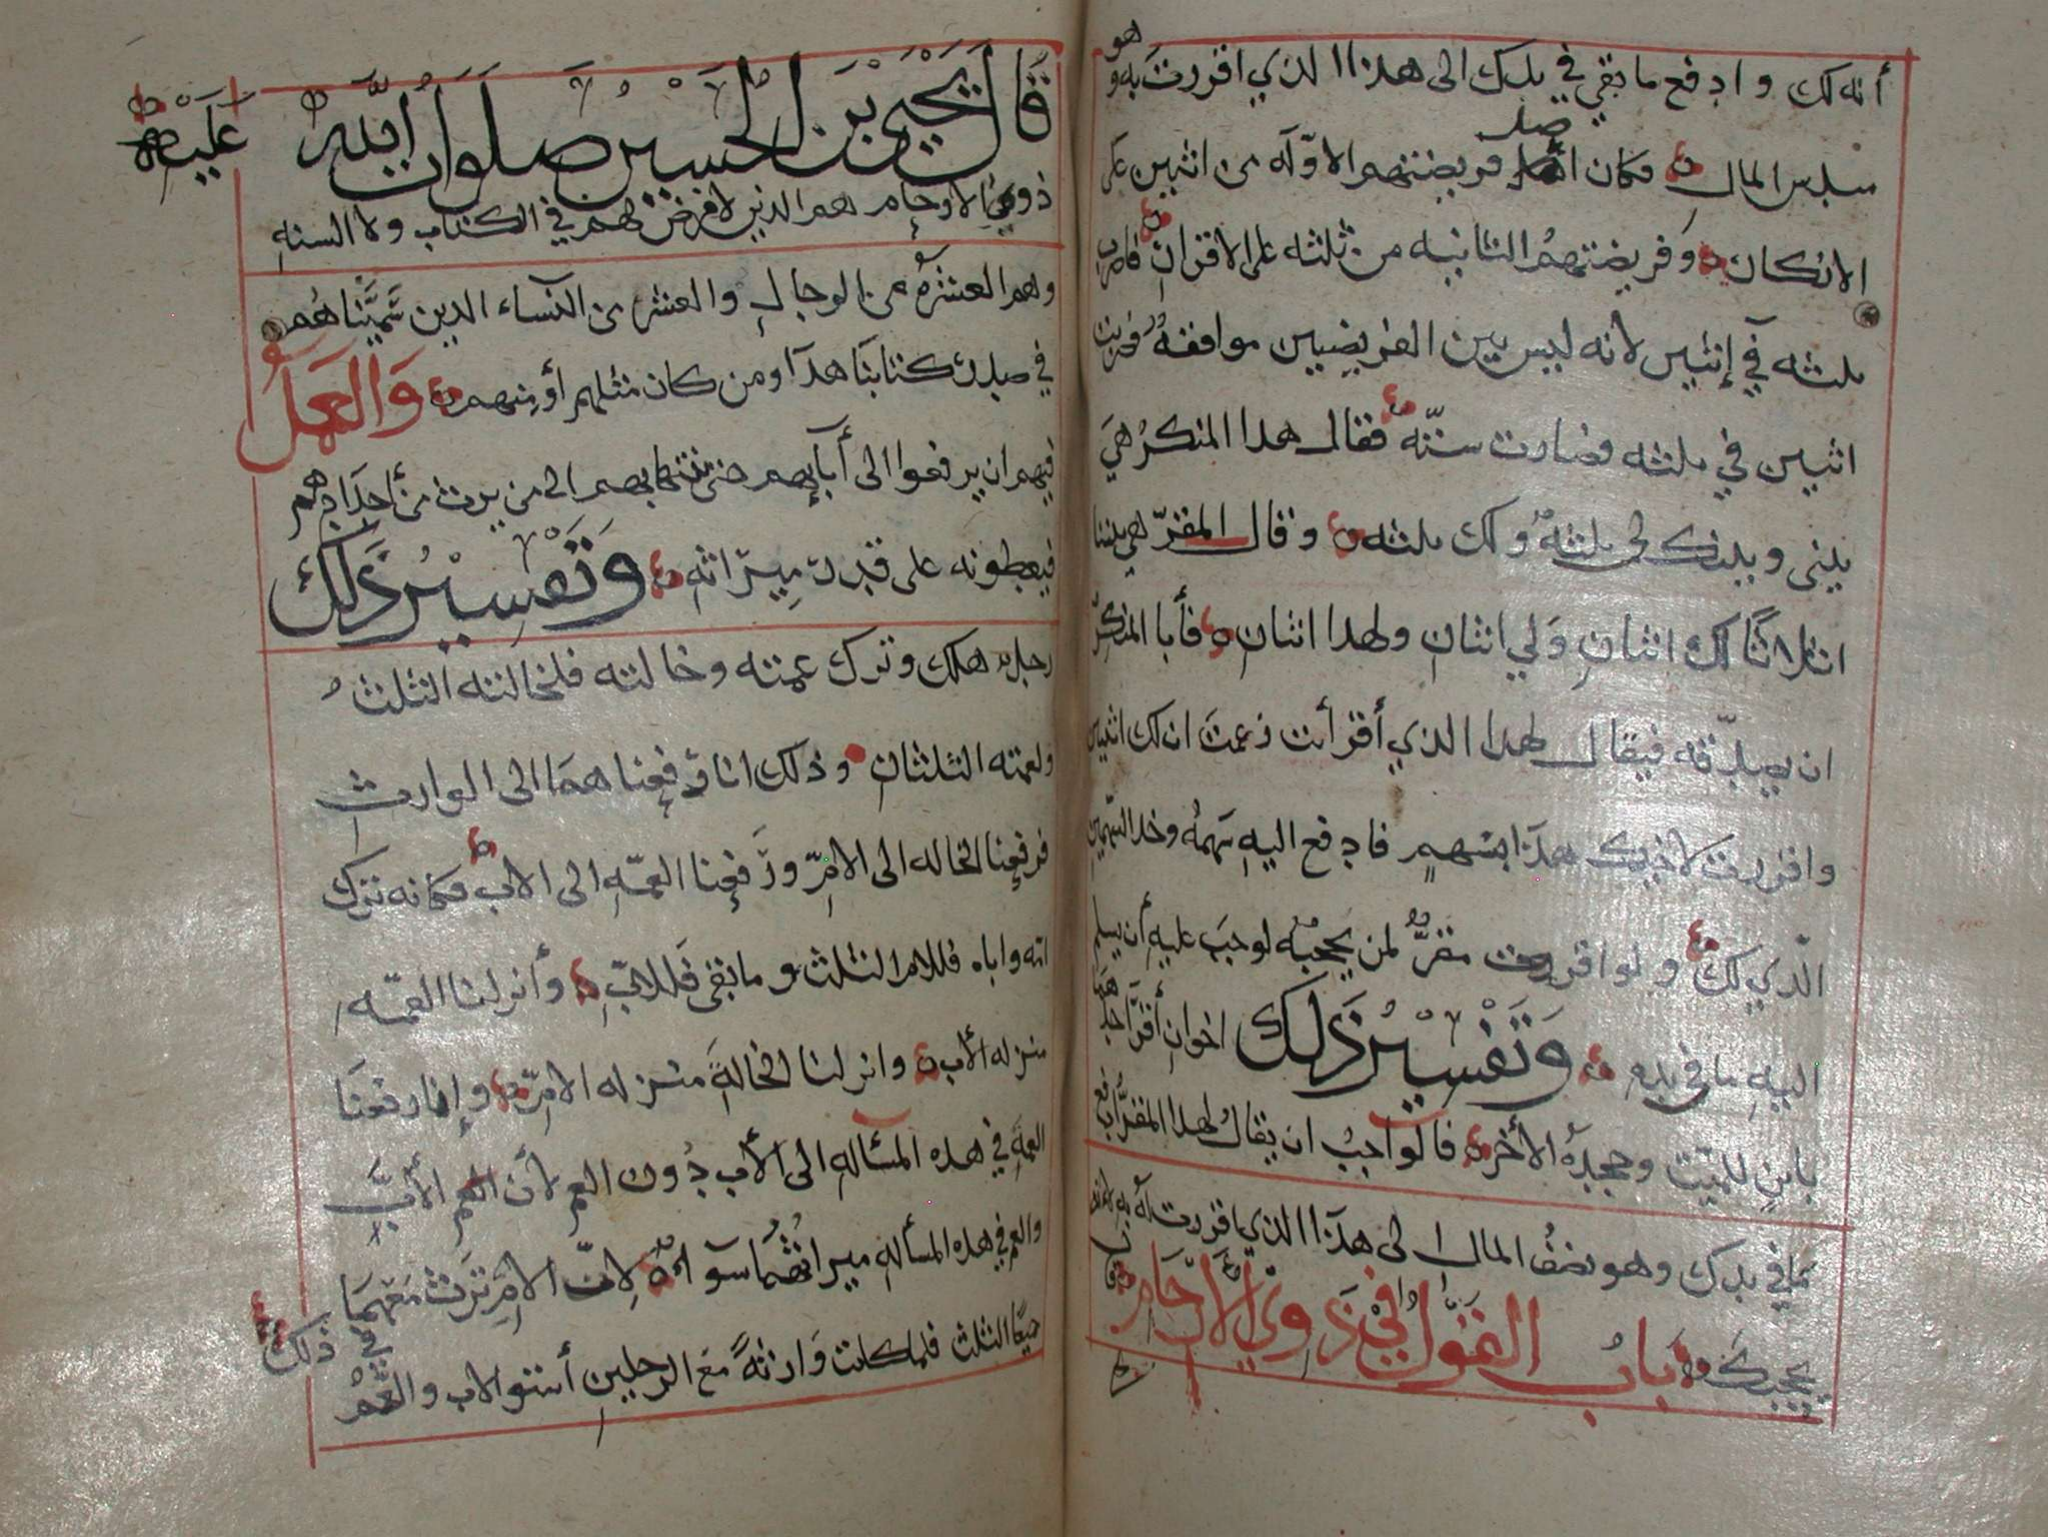 أنه لك وادفع ما بقي في يدك الى هذا الذي اقررت به وهو
سدس المال فكان اصل فريضتهم الاوله من اثنين على
الانكار وفريضتهم الثانيه من ثلثه على الاقرار فاضرب
ثلثه في إثنين لانه ليس بين الفريضين موافقه فضربت
اثنين في ثلثه فصارت ستّه فقال هذا المنكر هي
بيني وبينك لي ثلثه ولك ثلثه وقال المقرّ هي بيننا
اثلاثًا لك اثنان ولي اثنان ولهذا اثنان فأبا المنكر
ان يصدّقه فيقال لهذا الذي أقر أنت زعمت ان لك اثنين
واقررت لاخيك هذا بسهم فادفع اليه سهمه وخذ السهمين
الّذي لك ولو اقررت مقرٌّ لمن يحجبه لوجب عليه أن يسلم
اليه ما في يده وتفسير ذلك اخوان أقرّ احدهما
بابن للميّت وجحده الأخر فالواجب ان يقال لهذا المقرّ ادفع
ما في يدك وهو نصف المال الى هذا الذي اقررت به لانه
يحجبك باب القول في ذوي الارحام
قال يحيى بن الحسين صلوات الله عليه
ذوي الارحام هم الذين لا فرض لهم في الكتاب ولا السنه
وهم العشره من الرجال والعشر من النساء الذين سمّيناهم
في صدر كتابنا هذا ومن كان مثلهم أو منهم والعمل
فيهم ان يرفعوا الى أبآيهم حتى ينتها بهم الى من يرث من أجدادهم
فيعطونه على قدر ميراثه وتفسير ذلك
رجل هلك وترك عمته وخالته فلخالته الثلث
ولعمته الثلثان وذلك انا رفعناهما الى الوارث
فرفعنا الخاله الى الامّ ورفعنا العمّه الى الاب فكانه ترك
امه واباه فللام الثلث وما بقى فللابّ وأنزلنا العمّه
منزله الأب وانزلنا الخالة منزله الامّ وإنما رفعنا
العمة في هذه المسأله الى الأب دون العم لأن العم الأبّ
والعم في هذه المسأله ميراثهما سوآء لانّ الامّ ترث معهما
جميعًا الثلث فلما كانت وارثةً مع الرجلين أستو الاب والعمّ
في ذلك